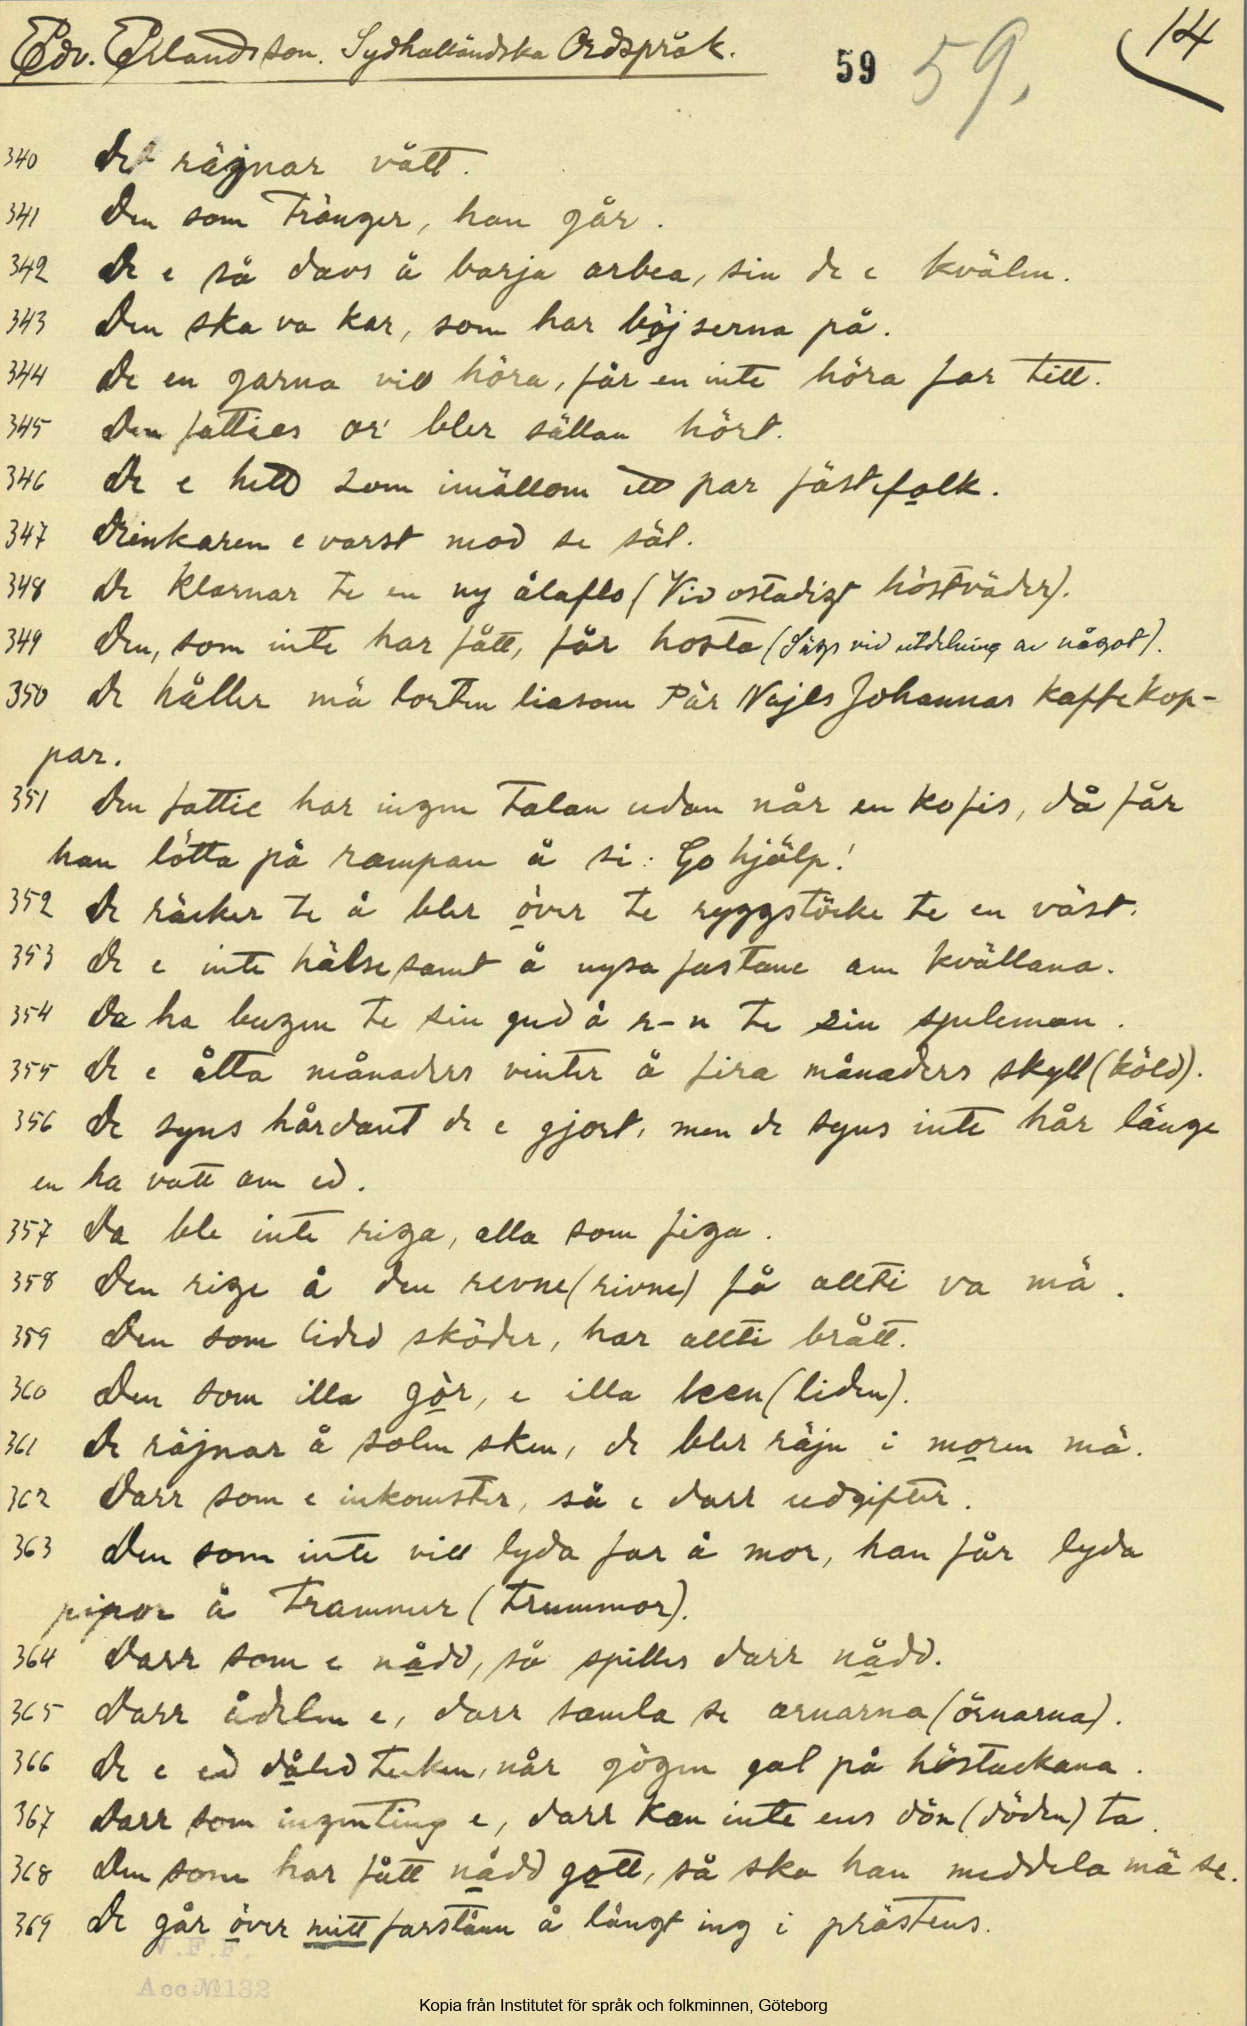 Edv. Erlandsson. Sydhalländska Ordspråk.
59 59. 14
340 De räjnar vått.
341 Den som tränger, han går.
342 De e så davs å barja arbea, sin de e kvälen.
343 Den ska va kar, som har böjserna på.
344 De en garna vill höra, får en inte höra far till.
345 Den fatties or bler sällan hört.
346 De e hett som imällom ett par fästefolk.
347 Drinkaren e varst mod se säl.
348 De klarnar te en ny ålaflo (Vid ostadigt höstväder).
349 Den, som inte har fått, får hosta (Sägs vid utdelning av något).
350 De håller mä lorten liasom Pär Najls Johannas kaffekop-
par.
351 Den fattie har ingen talan udan når en kofis, då får
han lötta på rampan å si: Go hjälp!
352 De räcker te å bler över te ryggstöcke te en väst.
353 De e inte hälsesamt å nysa fastane am kvällana.
354 Da ha bugen te sin gud å r-n te sin spuleman.
355 De e åtta månaders vinter å fira månaders skyll (köld).
356 De syns hårdant de e gjort, men de syns inte hår länge
en ha vatt am ed.
357 Da ble inte riga, alla som figa.
358 Den rige å den revne (rivne) få allti va mä.
359 Den som lided sköder, har allti brått.
360 Den som illa gör, e illa leen (liden).
361 De räjnar å solen sken, de bler räjn i moren mä.
362 Darr som e inkomster, så e darr udgifter.
363 Den som inte vill lyda far å mor, han får lyda
pipor å trammer (trummor).
364 Darr som e nådd, så spilles darr nådd.
365 Darr ådelen e, darr samla se arnarna (örnarna).
366 De e ed dåled tecken, når gögen gal på höstackana.
367 Darr som ingenting e, darr kan inte ens dön (döden) ta.
368 Den som har fått nådd gott, så ska han meddela mä se.
369 De går över mitt farstånn å långt ing i prästens.
V.F.F.
Acc № 132
Kopia från Institutet för språk och folkminnen, Göteborg